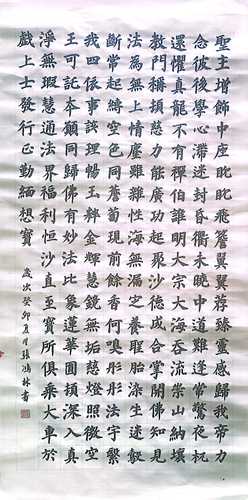 聖主增飾中座眈眈飛簷翼翼荐臻靈感歸我帝力
念彼後學心滯迷封昏衢未曉中道難逢常驚夜杌
還懼真龍不有稱伯誰明大宗大海吞流崇山納壤
教門稱頓慈力能廣功起聚沙德成合掌開佛知見
法為無上情塵雖雜性海無漏定養聖胎染生迷㲉
斷常起縛空色同薝蔔現前餘香何嗅彤彤法宇繫
我四依事該理暢玉粹金輝慧鏡無垢慈燈照微空
王可託本願同歸佛有妙法比象蓮華圓頓深入真
淨無瑕慧通法界福利恒沙直至寶所俱乘大車於
戲上士發行正勤緬想寶
歲次癸卯夏月張鴻林書